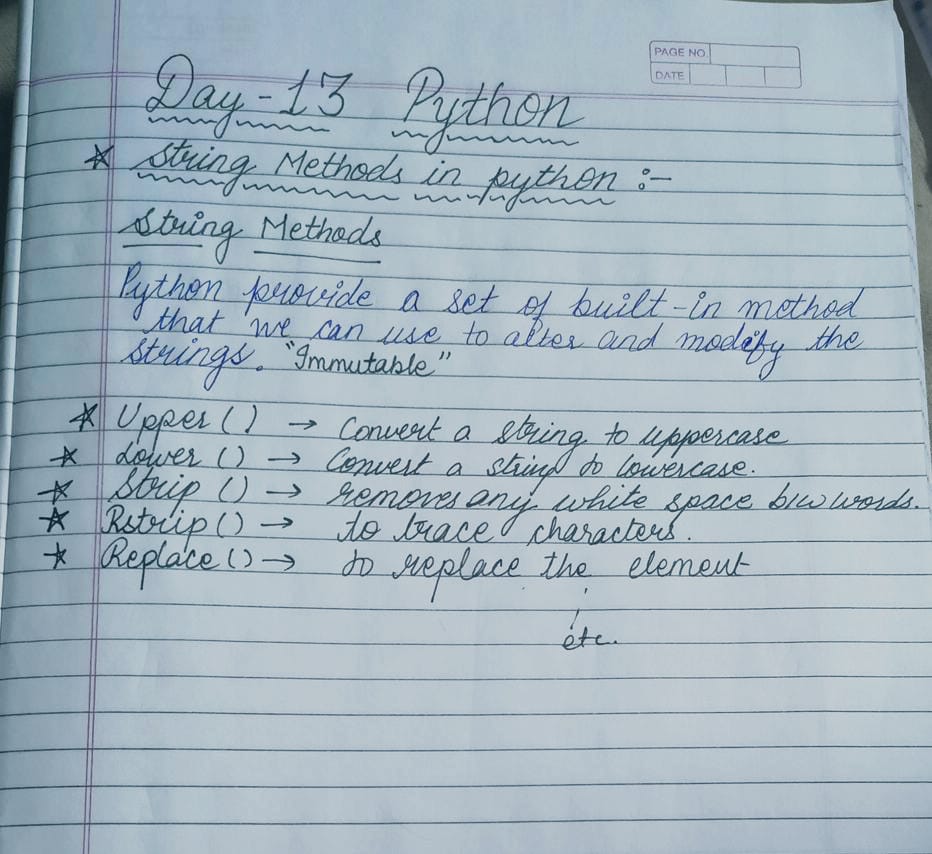 PAGE NO.
DATE
Day-13 Python
* String Methods in python :-
String Methods
Python provide a set of built-in method
that we can use to alter and modify the
strings. "Immutable"
* Upper ( ) → Convert a string to uppercase
* Lower () → Convert a string to lowercase.
* Strip () → removes any white space b/w words.
* Rstrip () → to trace characters.
* Replace () → to replace the element
etc.